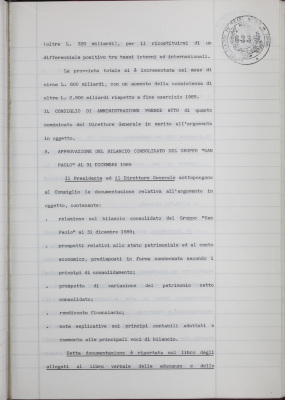 (oltre L. 320 miliardi), per il ricostituirsi di un
differenziale positivo tra tassi interni ed internazionali.
La provvista totale si è incrementata nel mese di
circa L. 600 miliardi, con un aumento della consistenza di
oltre L. 2.900 miliardi rispetto a fine esercizio 1989.
IL CONSIGLIO DI AMMINISTRAZIONE PRENDE ATTO di quanto
comunicato dal Direttore Generale in merito all'argomento
in oggetto.
APPROVAZIONE DEL BILANCIO CONSOLIDATO DEL GRUPPO "SAN
PAOLO" AL 31 DICEMBRE 1989
Il Presidente ed il Direttore Generale sottopongono
al Consiglio la documentazione relativa all'argomento in
oggetto, contenente:
. relazione sul bilancio consolidato del Gruppo "San
Paolo" al 31 dicembre 1989;
. prospetti relativi allo stato patrimoniale ed al conto
economico, predisposti in forma condensata secondo i
principi di consolidamento;
. prospetto di variazione del patrimonio netto
consolidato;
. rendiconto finanziario;
. note esplicative sui principi contabili adottati e
commento alle principali voci di bilancio.
Detta documentazione è riportata sul libro degli
allegati al libro verbale delle adunanze e delle